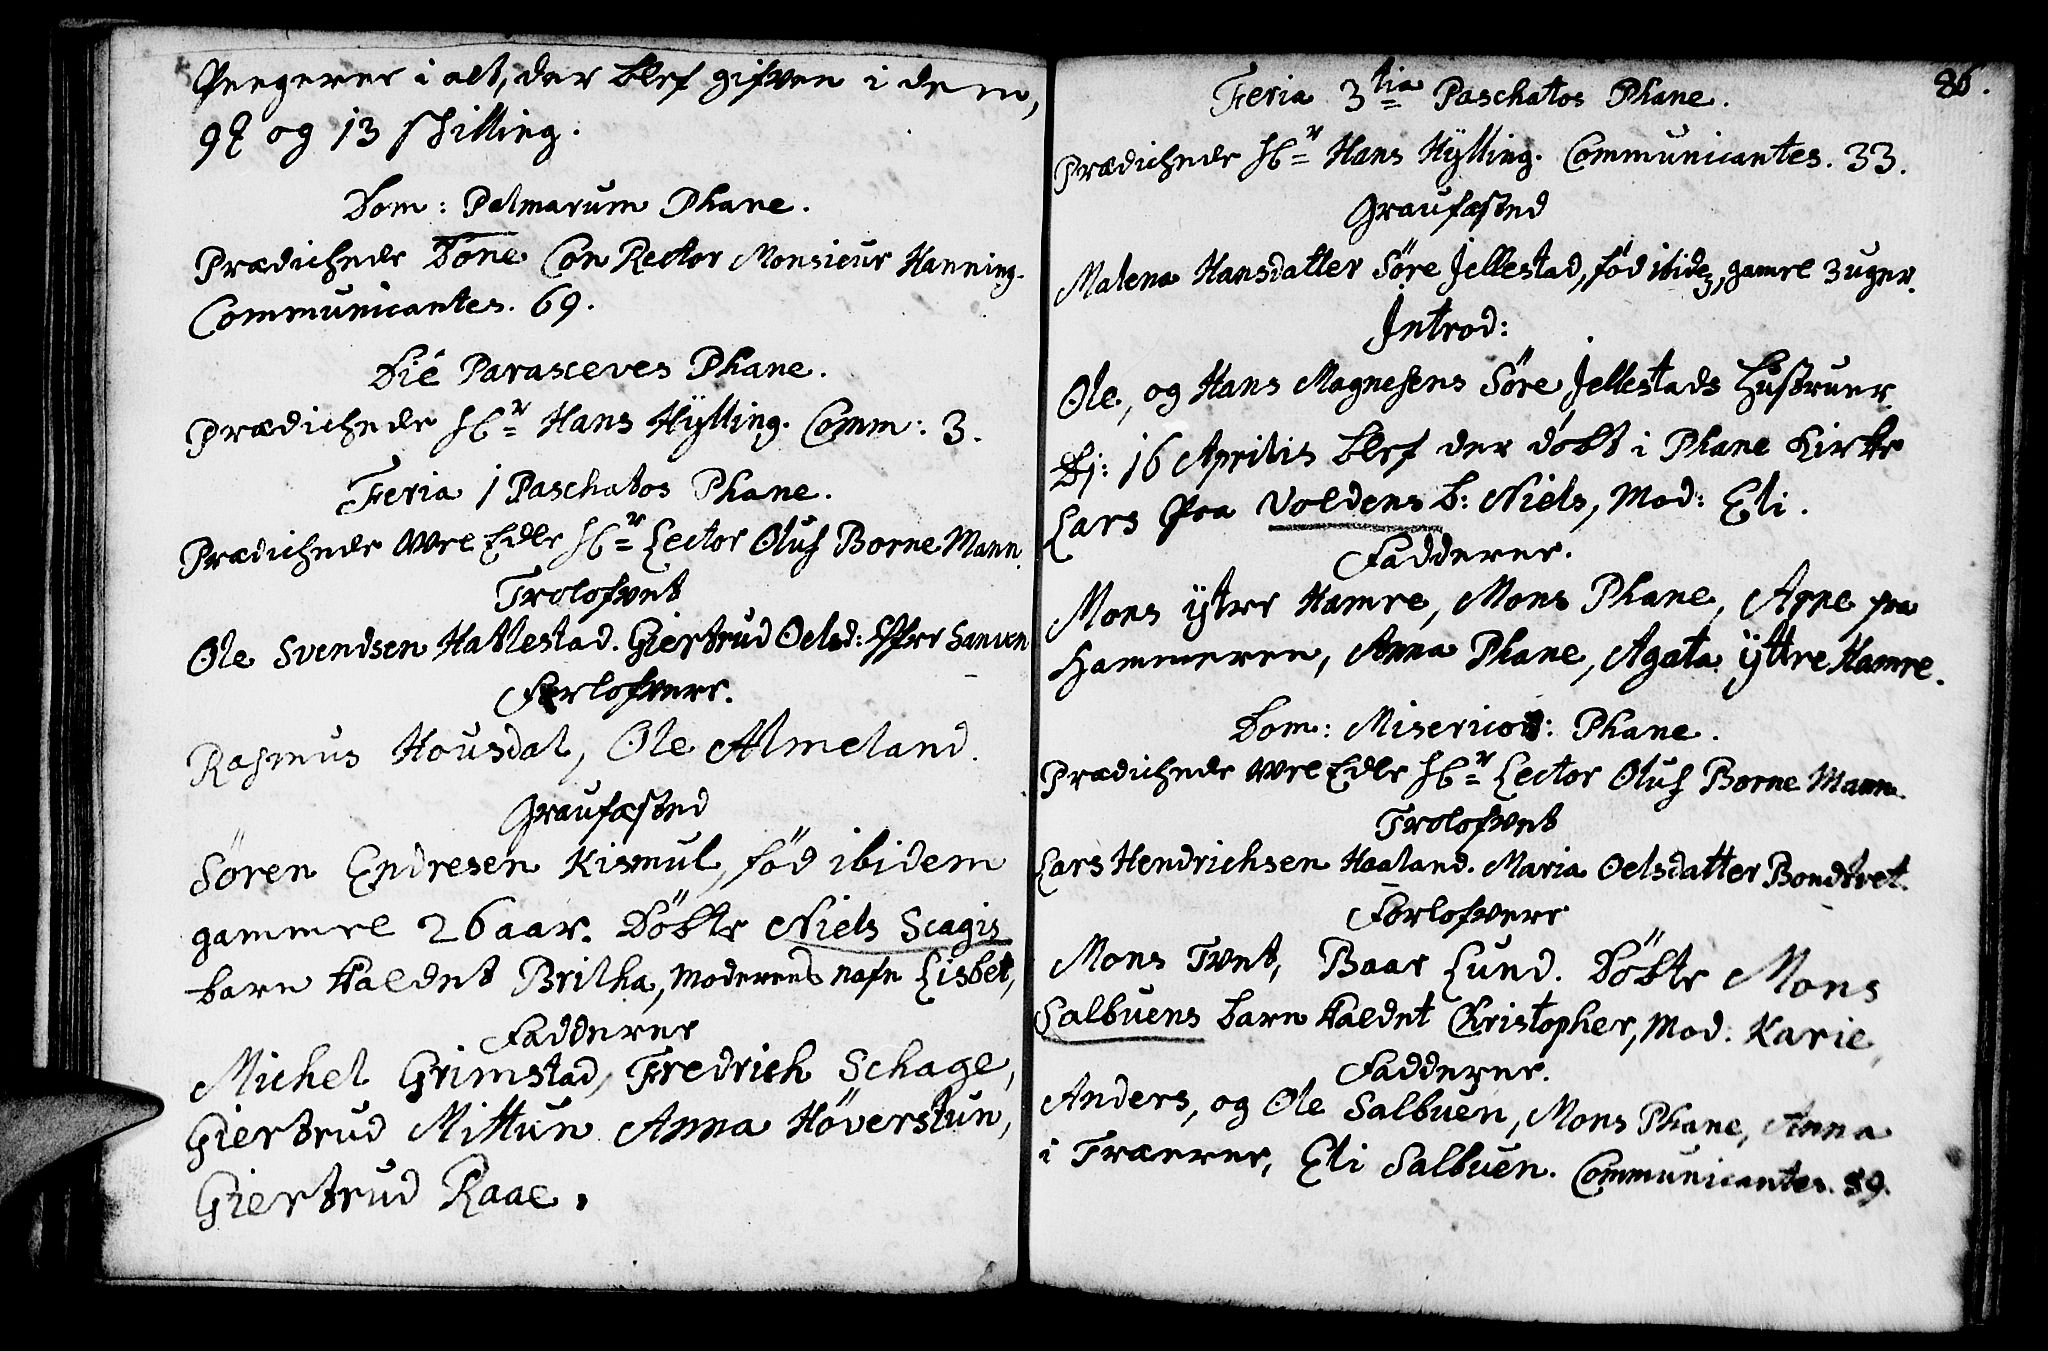 Pengerne i alt, der blef gifven i dem,
9 og 13 skilling.
Dom: Palmarum Phane.
Prædichede Done Con Rector Monsieur Hanning.
Communicantes. 69.
Die Parasceves Phane.
Prædichede Hr Hans Hÿlling. Comm: 3.
Feria 1 Paschatos Phane.
Prædichede Wel Edle Hr Lector Oluf Borne Mann.
Trolofvet
Ole Svendsen Hatlestad. Giertrud Oelsd: Øfre Sanven
Forlofvere.
Rasmus Housdal, Ole Almeland.
Graufæsted
Sören Endresen Kismul, föd ibidem
gammel 26 aar. Döbte Niels Scagis
barn kaldet Britha, Moderens nafn Lisbet,
Fadderer
Michel Grimstad, Fredrich Schage,
Giertrud Mittun Anna Höverstun,
Giertrud Raae.
86.
Feria 3tia Paschatos Phane.
Prædichede Hr Hans Hÿlling. Communicantes. 33.
Graufæsted
Malena Hansdatter Söre Jellestad, föd ibidem, gamel 3 uger.
Introd:
Ole, og Hans Magnesens Söre Jellestads Hustruer.
Dj: 16 Aprilis blef der döbt i Phane Kirke
Lars paa Voldens b: Niels, Mod: Eli.
Fadderer.
Mons ÿtre Hamre, Mons Phane, Arne paa
Hammeren, Anna Phane, Agata ÿttre Hamre.
Dom: Misericod: Phane.
Prædichede Wel Edle Hr Lector Oluf Borne Mann.
Trolofvet
Lars Hendrichsen Haaland. Maria Oelsdatter Bondtvet.
Forlofvere
Mons Tvet, Baar Lund. Döbte Mons
Salbuens barn kaldet Christopher, Mod. Karie,
Fadderer.
Anders, og Ole Salbuen, Mons Phane, Anna
i Træerne, Eli Salbuen. Communicantes. 89.